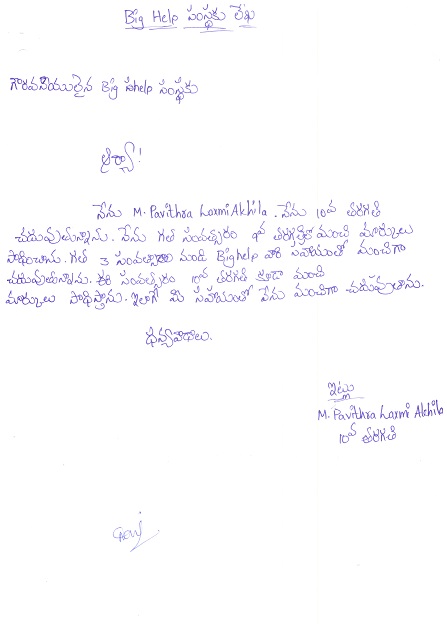 Big Help సంస్థకు లేఖ
గౌరవనీయులైన Big help సంస్థకు
ఆర్యా!
నేను M. Pavithra Laxmi Akhila. నేను 10వ తరగతి
చదువుతున్నాను. నేను గత సంవత్సరం 9వ తరగతిలో మంచి మార్కులు
సాధించాను. గత 3 సంవత్సరాల నుండి Bighelp వారి సహాయంతో మంచిగా
చదువుతున్నాను. ఈ సంవత్సరం 10వ తరగతి కూడా మంచి
మార్కులు సాధిస్తాను. ఇలాగే మీ సహాయంతో నేను మంచిగా చదువుతాను.
ధన్యవాదాలు.
ఇట్లు
M. Pavithra Laxmi Akhila
10వ తరగతి